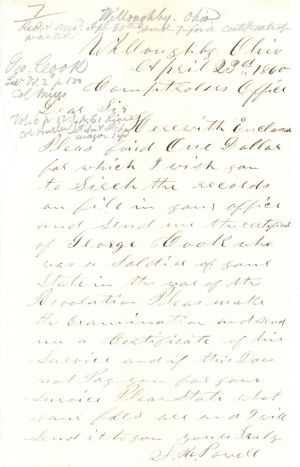 Willoughby, Ohio
Recd & ansd Apl 30th for a certificate of
Geo Cook
Col
Willoughby Ohio
April 23rd 1860
Comptrolers Office
Dear Sir
Herewith Enclose
Pleas find One Dollar
for which I wish you
to Sirch the records
on file in your office
and send me the certificate
of George Cook who
was a Soldier of your
State in the war of the
Revolution Pleas make
the Examination and send
me a Certificate of his
Service and if this Does
not Pay you for your
Service Pleas State what
your fees are and I will
send it to you yours Truly
S. R. Powell